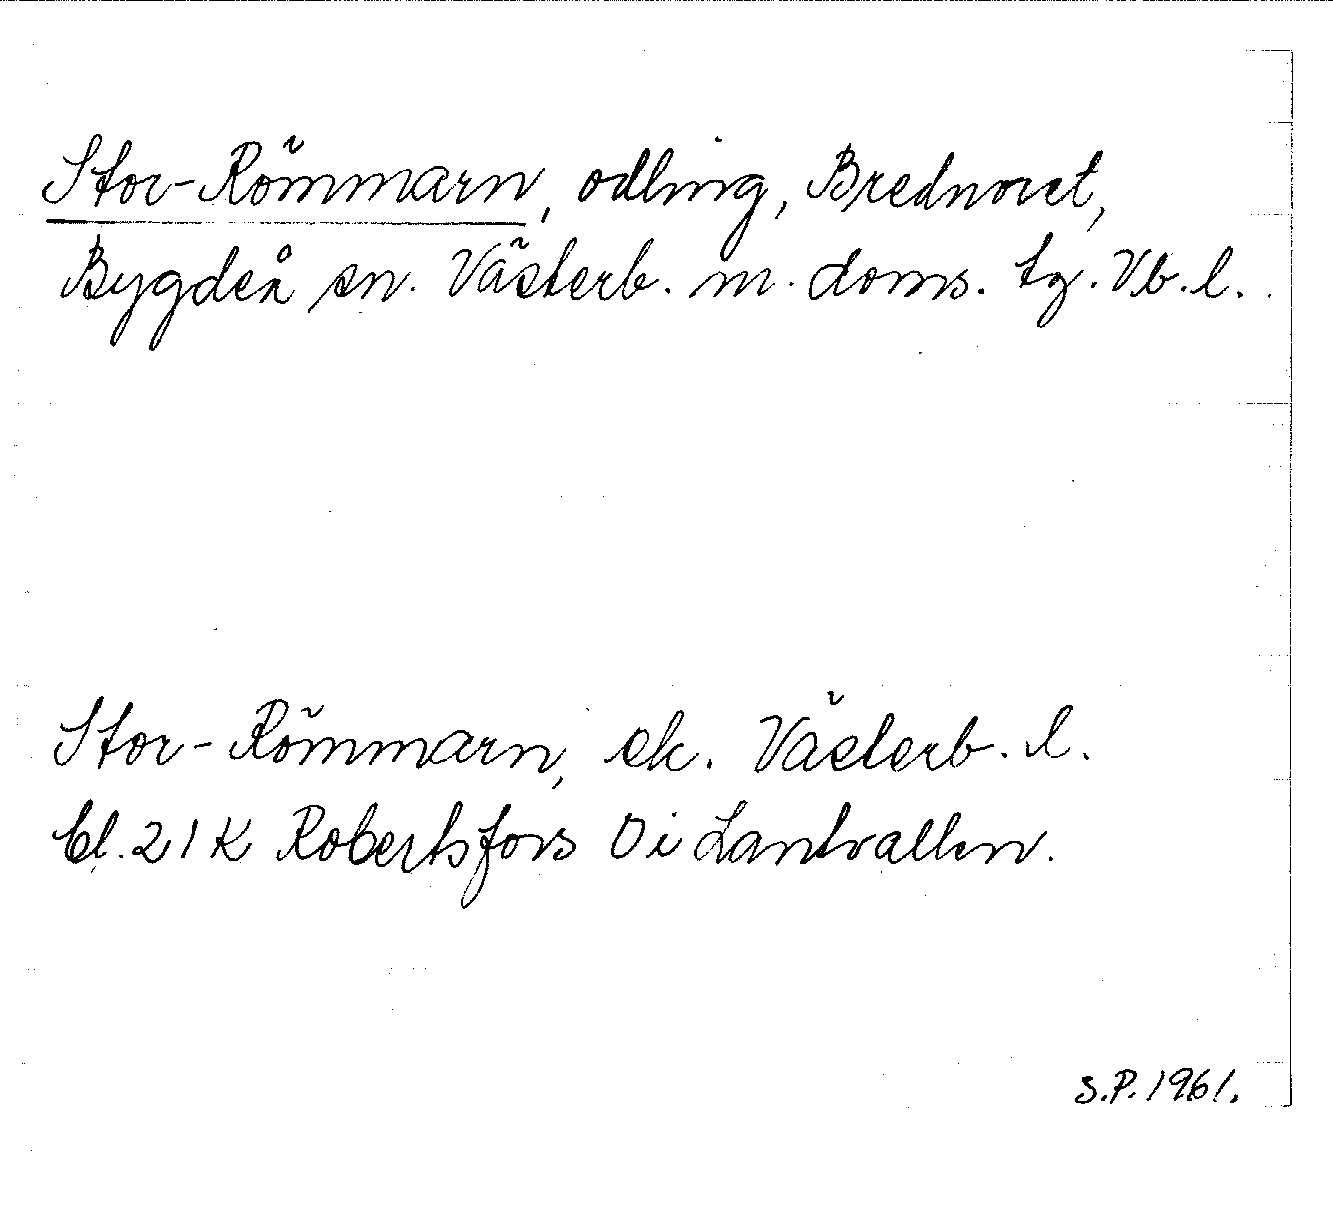 Stor-Römmarn, odling, Brednoret,
Bygdeå sn. Västerb. m. doms. tg. Vb. l.
Stor-Römmarn, ek. Västerb. l.
bl. 21 K Robertsfors Ö i Lantvallen.
S.P. 1961.